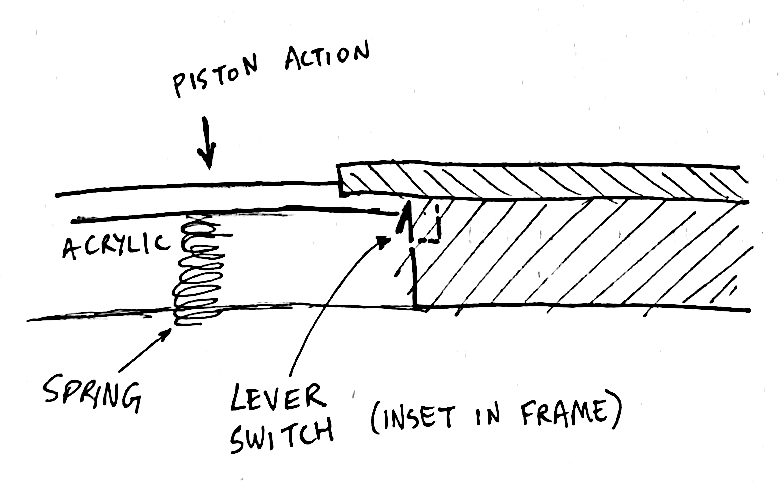 PISTON ACTION
ACRYLIC
SPRING
LEVER
SWITCH (INSET IN FRAME)